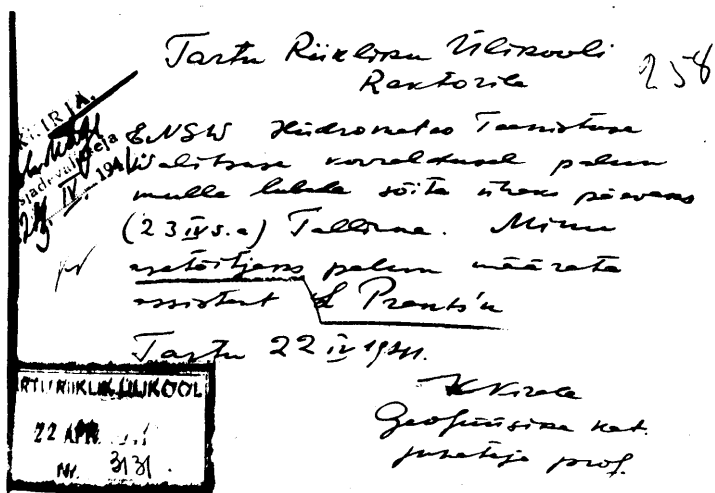 Tartu Riikliku Ülikooli
Rektorile
258
KIRJA.
asjadevalitseja
24. IV. 1941
ENSV Hüdrometeo Teenistuse
Valitsuse korraldusel palun
mulle lubada sõita üheks päevaks
(23 IV s.a) Tallinna. Minu
asetäitjaks palun määrata
assistent L Prants'u
Tartu 22 IV 1941.
K Kirde
Geofüüsika kat.
juhataja prof.
RTU RIIKLIK ÜLIKOOL
22 APR
Nr. 3131.